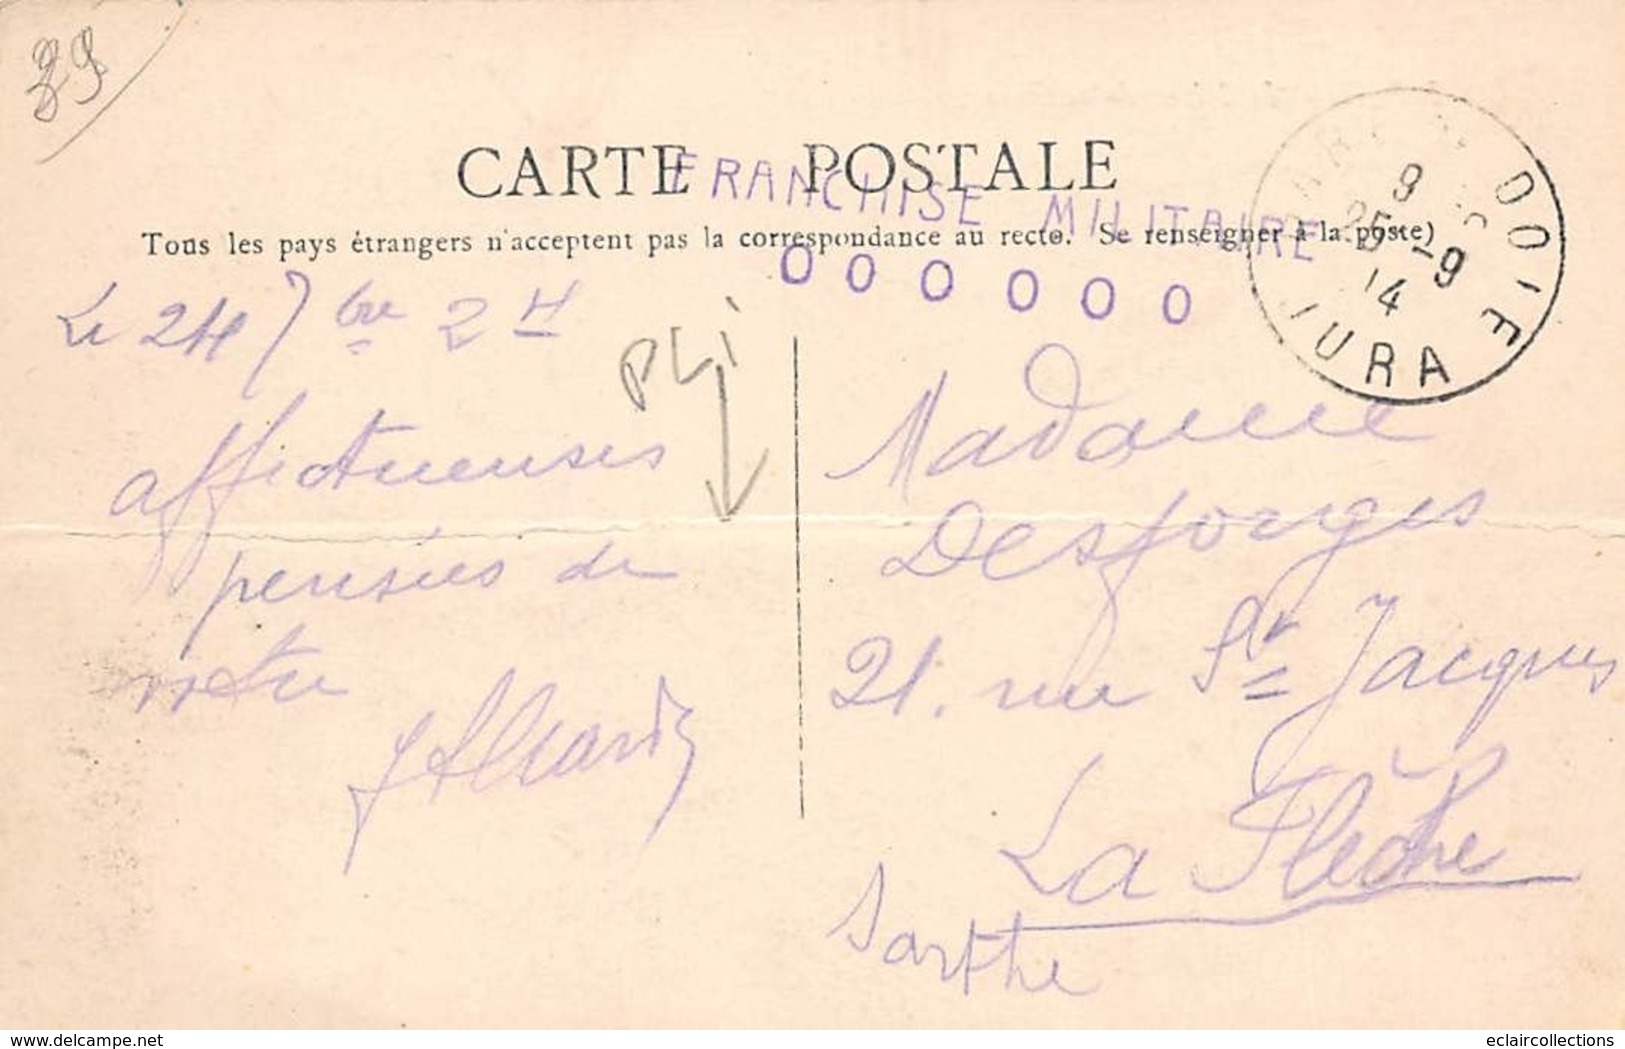 39
CARTE POSTALE
FRANCHISE MILITAIRE
Tous les pays étrangers n'acceptent pas la correspondance au recto. Se renseigner à la poste)
O O O O O O
9
25 -9
14
DOIE
JURA
Le 24 7bre 2H
PLi
affectueuses
pensées de
votre
Madame
Desforges
21. rue St Jacques
La Flèche
Sarthe
delcampe.net
eclaircollections